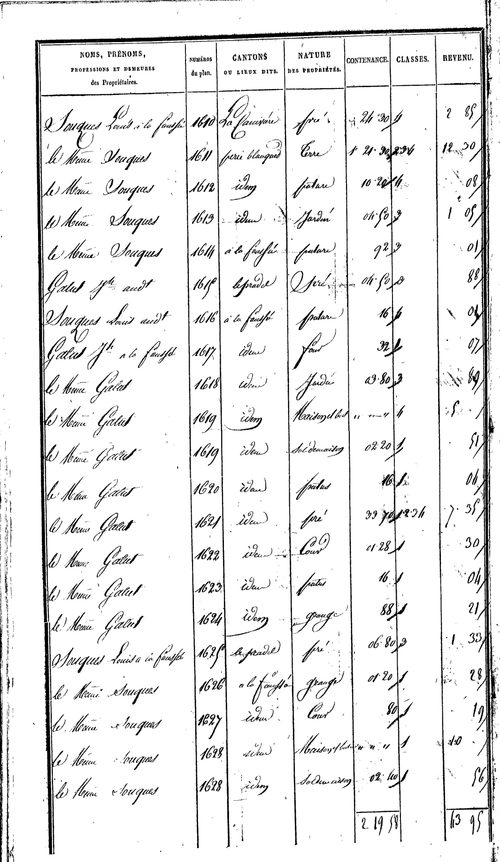 NOMS, PRÉNOMS, PROFESSIONS ET DEMEURES des Propriétaires. NUMÉROS du plan. CANTONS OU LIEUX DITS. NATURE DES PROPRIÉTÉS. CONTENANCE. CLASSES. REVENU.
Souques Louis à la 1610 pré 24 30 4 2 85
le Meme Souques 1611 Terre 1 21 30 234 12 30
le Meme Souques 1612 idem pature 10 20 4 08
le Meme Souques 1613 idem Jardin 04 50 3 1 05
le Meme Souques 1614 à la pature 92 3 01
Galut 1615 le pradel Pré 04 50 3 88
Souques Louis audt 1616 à la pature 16 4
Galut Jh a la 1617 idem four 32 1 07
le Meme Galut 1618 idem Jardin 03 80 3 89
le Meme Galut 1619 idem Maison et bat " " " 4 5 "
le Meme Galut 1619 idem sol de maison 02 20 1 51
le Meme Galut 1620 idem patus 16 1 04
le Meme Galut 1621 idem pré 33 70 1234 7 35
le Meme Galut 1622 idem Cour 01 28 1 30
le Meme Galut 1623 idem patus 16 1 04
le Meme Galut 1624 idem grange 88 1 21
Souques Louis a la 1625 le pradel pré 06 80 3 1 33
le Meme Souques 1626 a la grange 01 20 1 28
le Meme Souques 1627 idem Cour 80 1 19
le Meme Souques 1628 idem Maison et bat " " " 1 10 "
le Meme Souques 1628 idem sol de maison 02 40 1 56
2 19 58 43 95